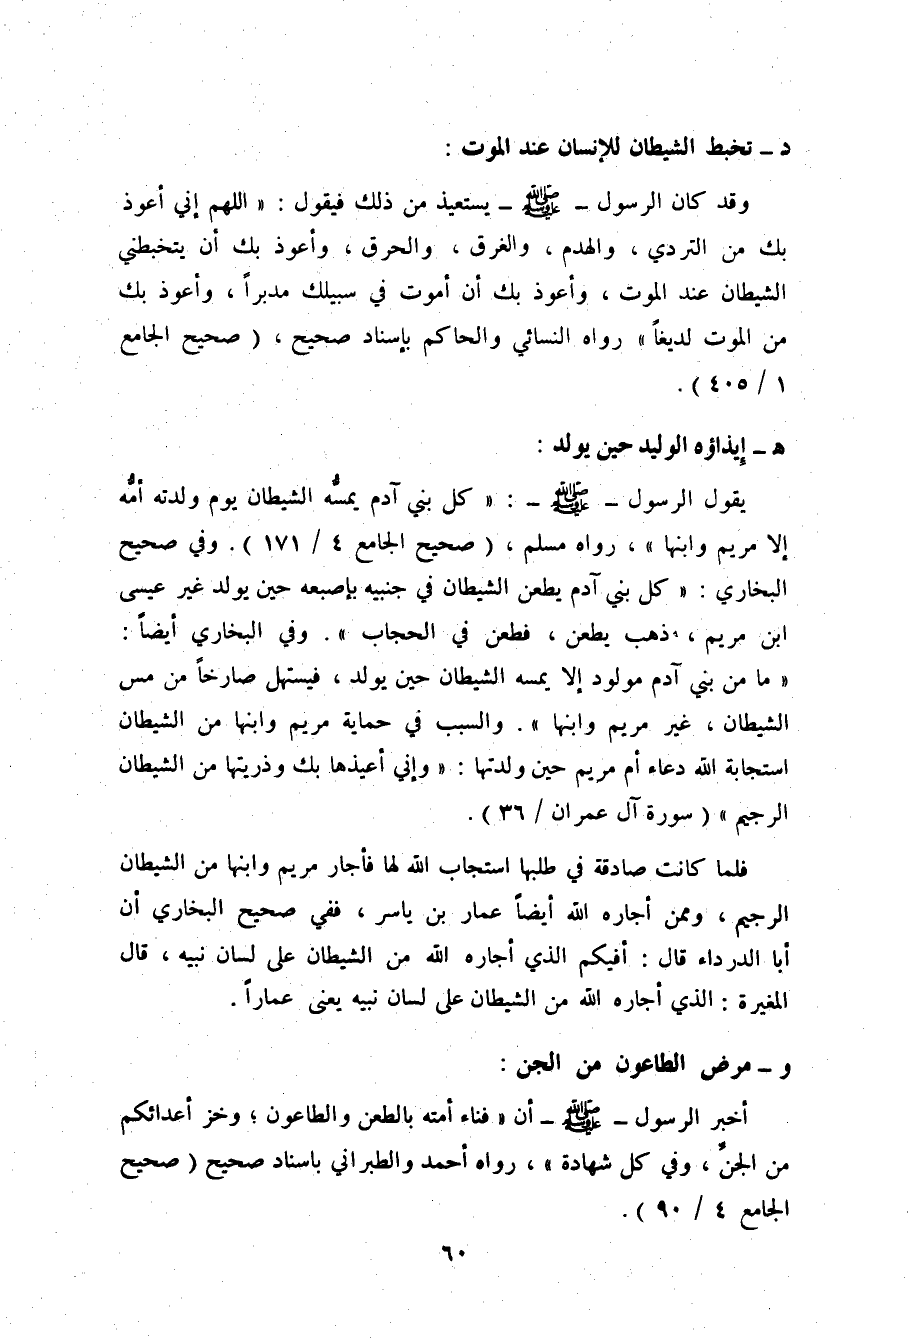 د ــ تخبط الشيطان للإنسان عند الموت :
وقد كان الرسول ــ ﷺ ــ يستعيذ من ذلك فيقول : « اللهم إني أعوذ
بك من التردي ، والهدم ، والغرق ، والحرق ، وأعوذ بك أن يتخبطني
الشيطان عند الموت ، وأعوذ بك أن أموت في سبيلك مدبراً ، وأعوذ بك
من الموت لديغاً » رواه النسائي والحاكم بإسناد صحيح ، ( صحيح الجامع
١ / ٤٠٥ ) .
هـ ــ إيذاؤه الوليد حين يولد :
يقول الرسول ــ ﷺ ــ : « كل بني آدم يمسُّه الشيطان يوم ولدته أمُّه
إلا مريم وابنها » ، رواه مسلم ، ( صحيح الجامع ٤ / ١٧١ ) . وفي صحيح
البخاري : « كل بني آدم يطعن الشيطان في جنبيه بإصبعه حين يولد غير عيسى
ابن مريم ، ذهب يطعن ، فطعن في الحجاب » . وفي البخاري أيضاً :
« ما من بني آدم مولود إلا يمسه الشيطان حين يولد ، فيستهل صارخاً من مس
الشيطان ، غير مريم وابنها » . والسبب في حماية مريم وابنها من الشيطان
استجابة الله دعاء أم مريم حين ولدتها : « وإني أعيذها بك وذريتها من الشيطان
الرجيم » ( سورة آل عمران / ٣٦ ) .
فلما كانت صادقة في طلبها استجاب الله لها فأجار مريم وابنها من الشيطان
الرجيم ، وممن أجاره الله أيضاً عمار بن ياسر ، ففي صحيح البخاري أن
أبا الدرداء قال : أفيكم الذي أجاره الله من الشيطان على لسان نبيه ، قال
المغيرة : الذي أجاره الله من الشيطان على لسان نبيه يعنى عماراً .
و ــ مرض الطاعون من الجن :
أخبر الرسول ــ ﷺ ــ أن « فناء أمته بالطعن والطاعون ؛ وخز أعدائكم
من الجنِّ ، وفي كل شهادة » ، رواه أحمد والطبراني باسناد صحيح ( صحيح
الجامع ٤ / ٩٠ ) .
٦٠